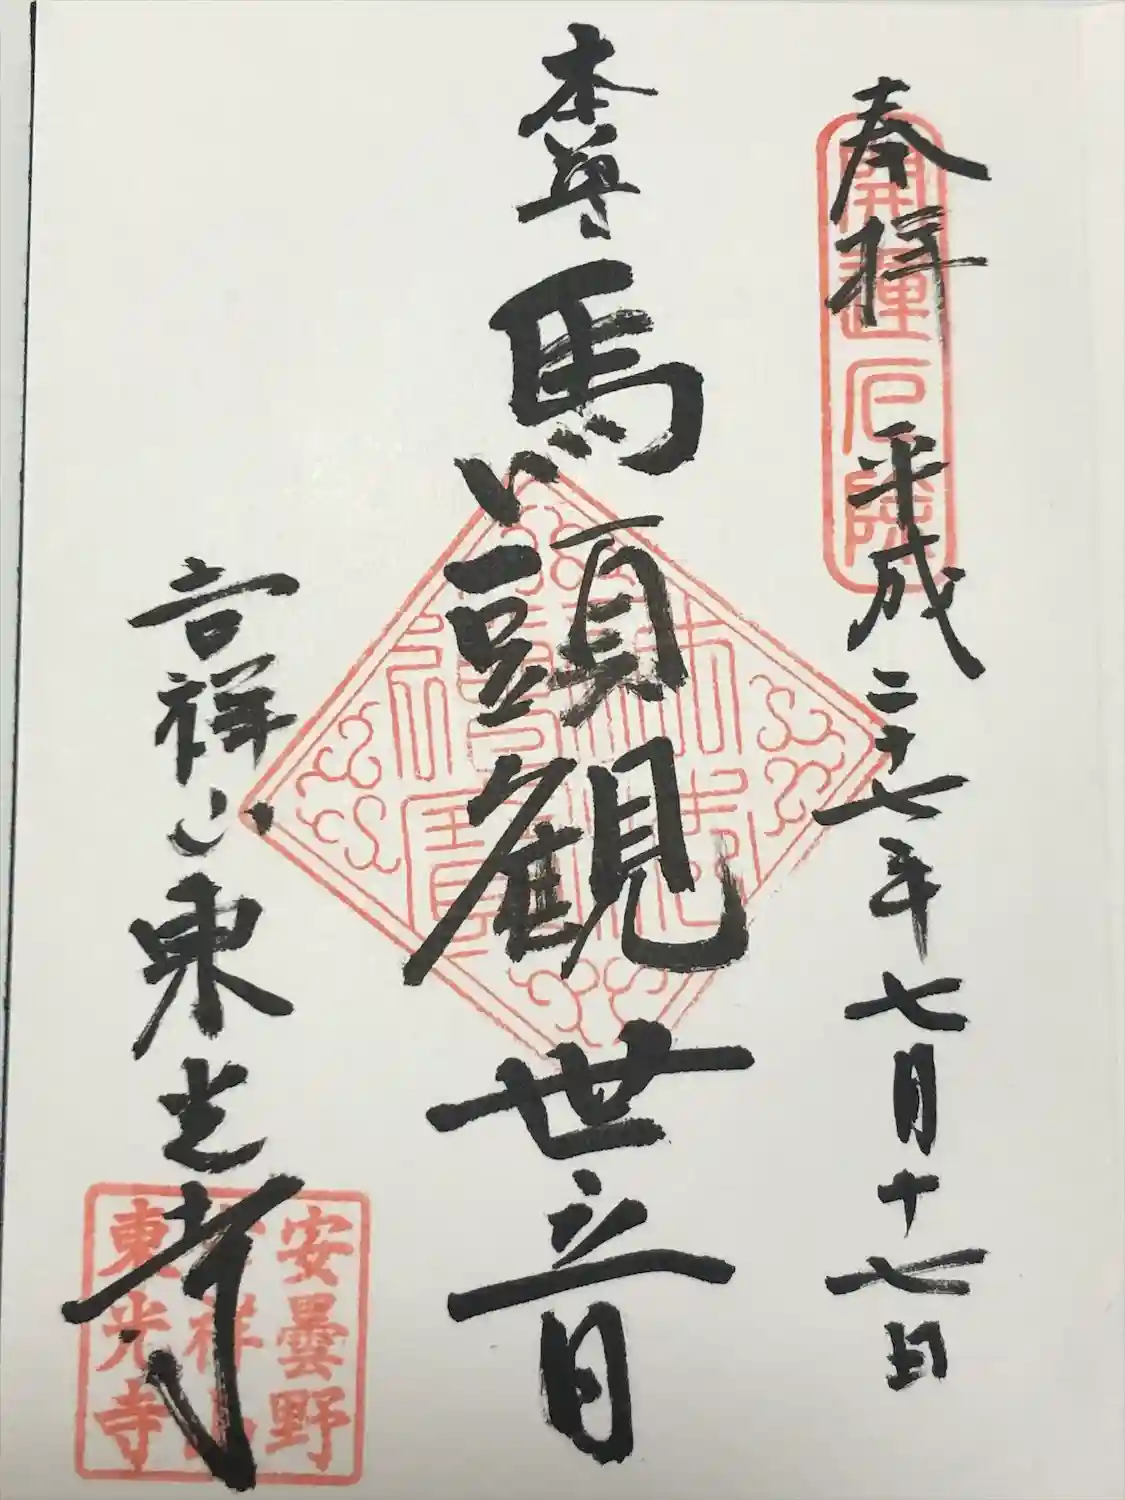 奉拝 平成二十七年七月十七日
開運厄除
本尊 馬頭観世音
佛法僧寶
吉祥山 東光寺
安曇野
吉祥山
東光寺